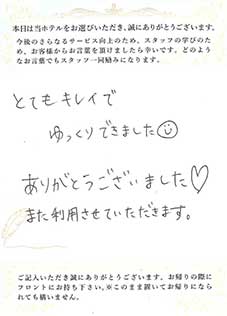 本日は当ホテルをお選びいただき、誠にありがとうございます。
今後のさらなるサービス向上のため、スタッフの学びのた
め、お客様からお言葉を頂けましたら幸いです。どのよう
なお言葉でもスタッフ一同励みになります。
とてもキレイで
ゆっくりできました☺
ありがとうございました♡
また利用させていただきます。
ご記入いただき誠にありがとうございます。お帰りの際に
フロントにお持ち下さい。※このまま置いてお帰りになら
れても構いません。